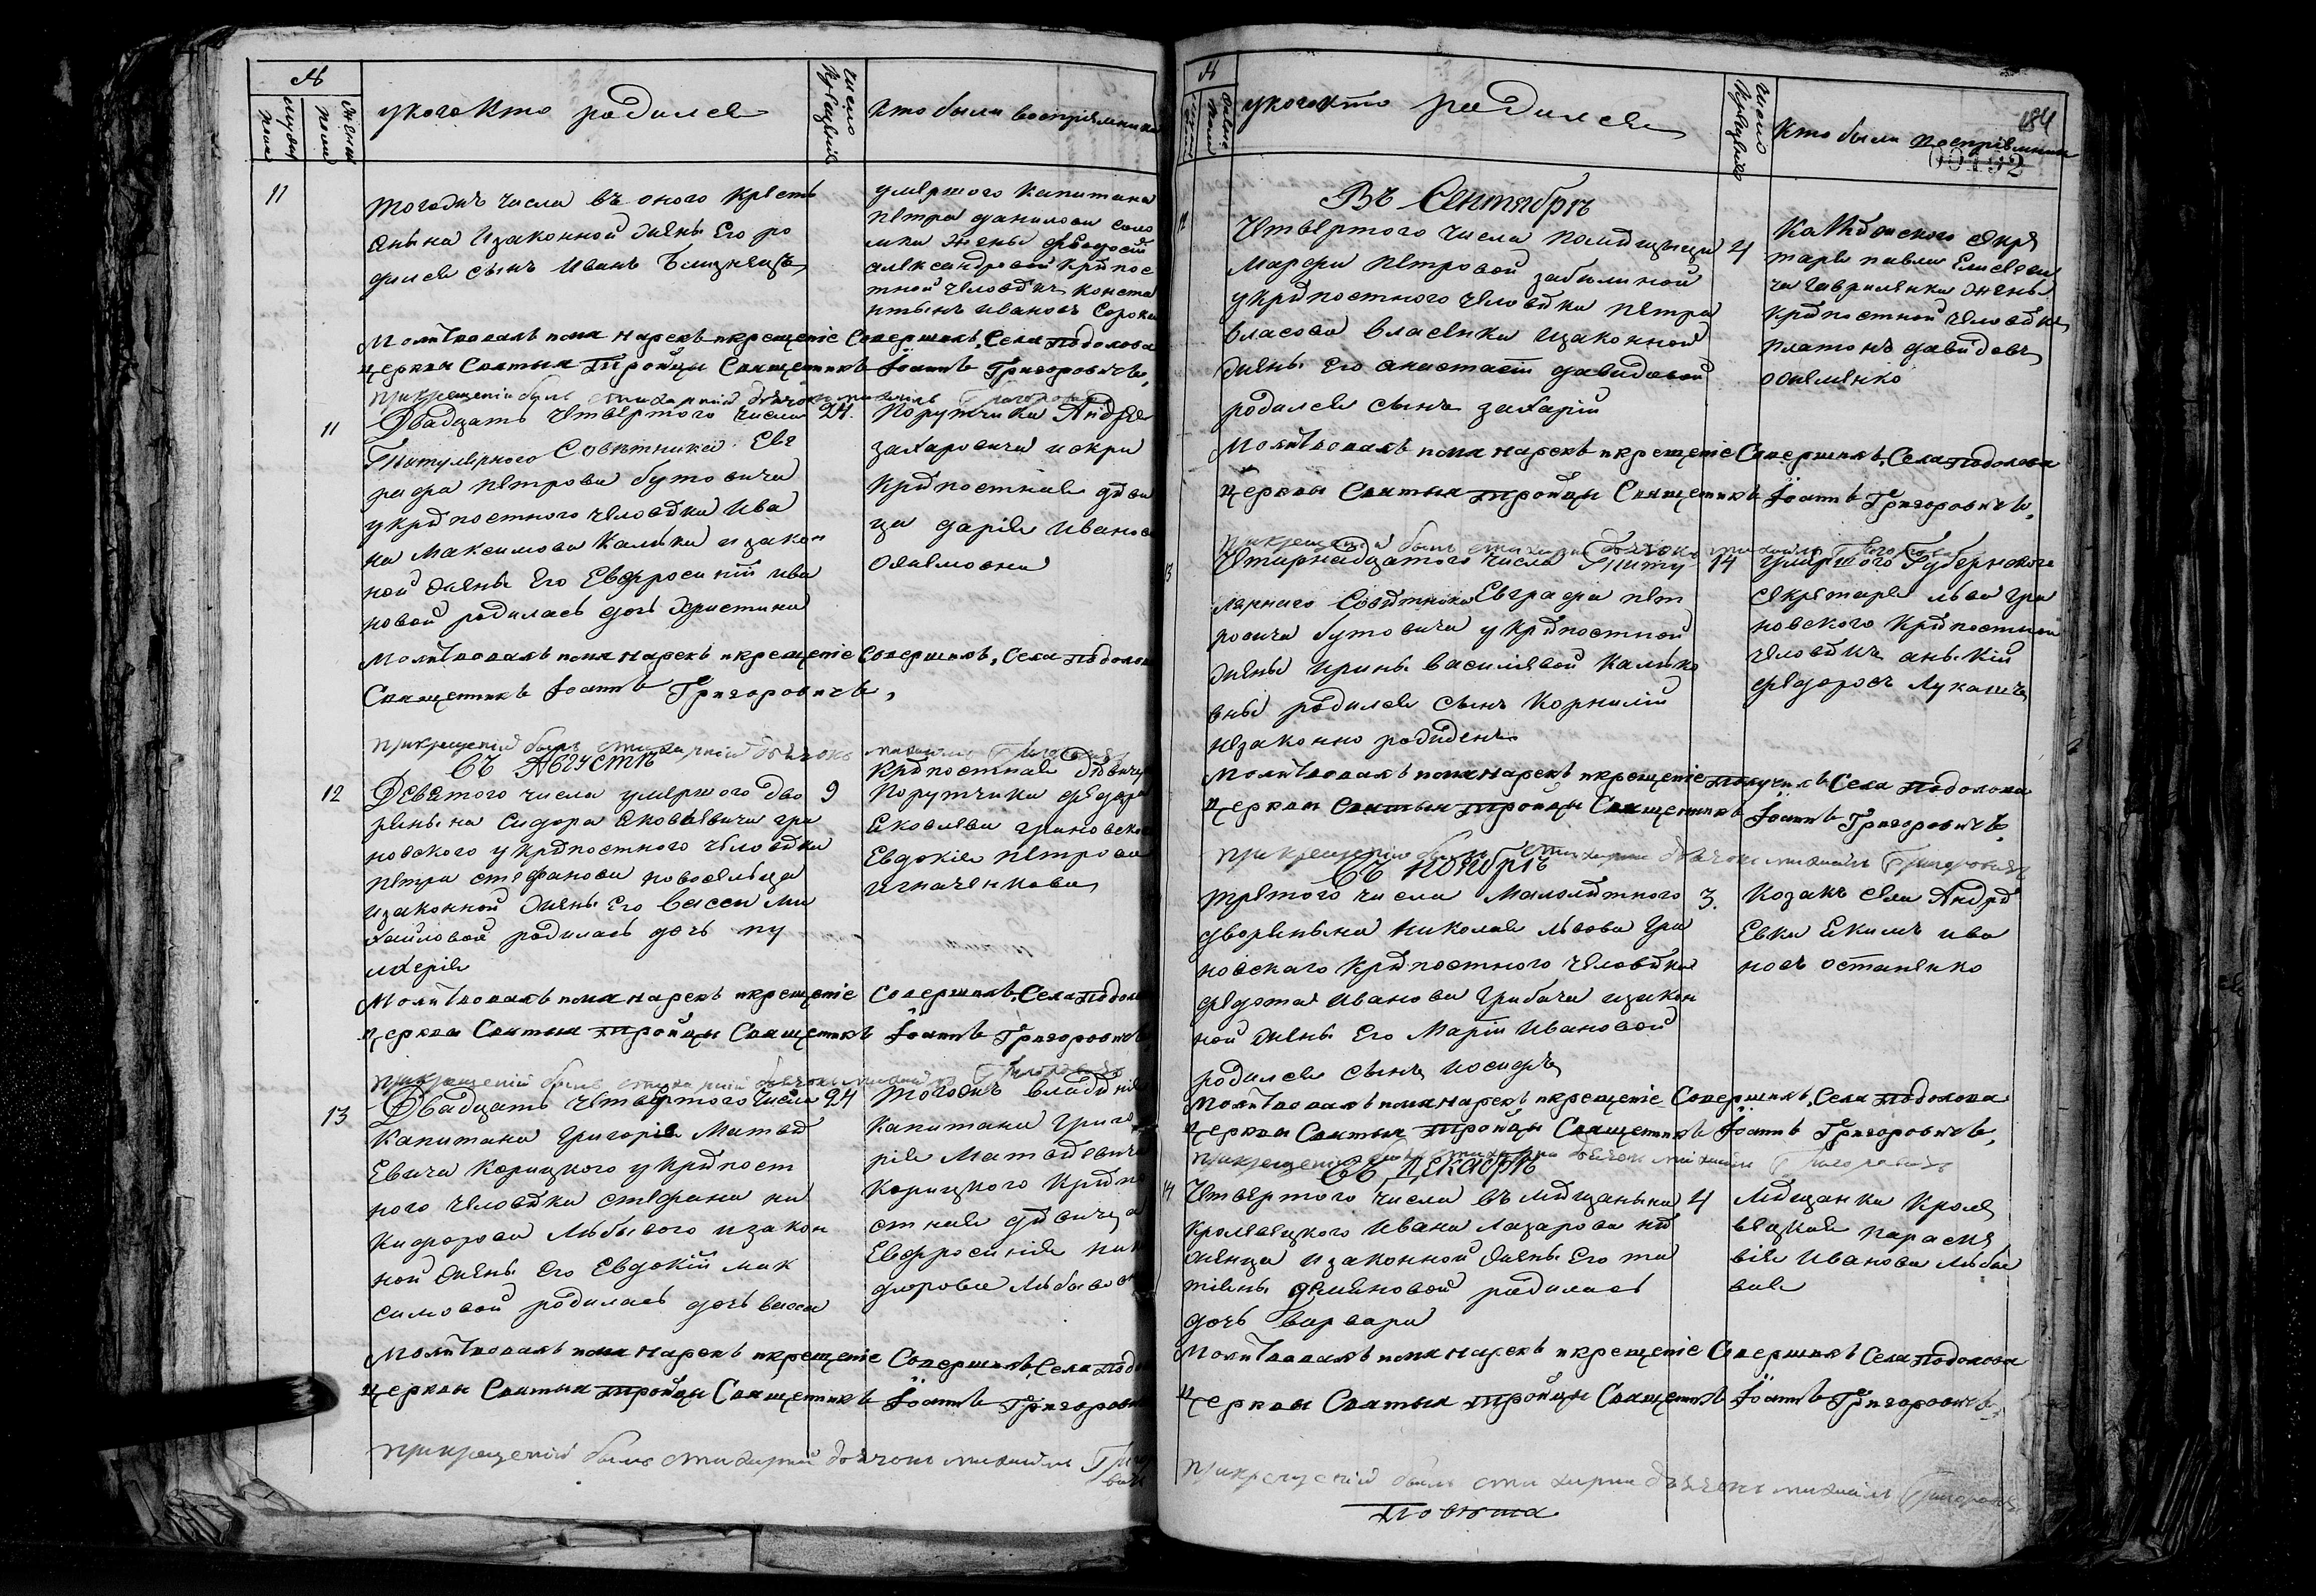 №
мужеска пола
женска пола
у кого кто родился
число крещенія
кто были воспріемники
11
тогожъ числа въ оного крестъ
янына изаконной жены его ро
дился сынъ Иванъ Близнецъ
умершого капитана
петра данилова соло
жены федосіи
александровой крѣпос
тной человѣкъ конста
нтынъ ивановъ Сорока
Молитвовалъ имя нарекъ и крещеніе Совершилъ, Села Подолова
церкви Святыя Тройцы Священникъ Іоаннъ Григоровичъ,
при крещеніи былъ стихарній дьячокъ михаилъ Григоровичъ
11
Двадцать четвертого числа
24.
Титулярного Совѣтника Евг
рафа петрова бутовича
у крѣпостного человѣка Ива
на Максимова Калѣки изакон
ной жены его Евфросиніи ива
новой родилась дочь Христина
Порутчика Андрея
захаровича искри
крѣпостная дѣви
ца дарія Иванова
Молитвовалъ имя нарекъ и крещеніе Совершилъ, Села Подолова
Священникъ Іоаннъ Григоровичъ,
при крещеніи былъ стихарній дьячокъ михаилъ Григоровичъ
въ Августѣ
12
Девятого числа умершого дво
9
рянына Сидора яковлевича гра
новского у крѣпостного человѣка
петра стефанова новосельца
изаконной жены его Вассы ми
хайловой родилась дочь пу
лхерія
крѣпостная дѣвица
Порутчика федора
яковлева грановско
Евдокія петрова
игначенкова
Молитвовалъ имя нарекъ и крещеніе Совершилъ, Села Подолова
церкви Святыя Тройцы Священникъ Іоаннъ Григоровичъ,
при крещеніи былъ стихарній дьячокъ михаилъ Григоровичъ
13
Двадцать четвертого числа
24
Капитана Григорія Матвѣ
евича Корицкого у крѣпост
ного человѣка стефана ни
кифорова Лѣбывого изакон
ной жены его Евдокіи мак
симовой родилась дочь васса
тогожъ владѣнія
капитана Григо
рія Матвѣевича
Корицкого крѣпо
стная дѣвица
Евфросинія ник
ифорова Лѣбыво
Молитвовалъ имя нарекъ и крещеніе Совершилъ, Села Подо
церкви Святыя Тройцы Священникъ Іоаннъ Григорови
при крещеніи былъ стихарній дьячокъ михаилъ Григоро
вичъ
№
у кого кто родился
число крещенія
кто были воспріемники
184
00192
Въ Сентябрѣ
12
Четвертого числа помѣщицы
4
Марфи петровой забилиной
у крѣпостного человѣка петра
власова власенка изаконной
жены его анастасіи давидовой
родился сынъ захарій
секре
таря павла Елисееви
ча гавриленка жены
крѣпостной человѣкъ
платонъ давидовъ
Молитвовалъ имя нарекъ и крещеніе Совершилъ, Села Подолова
церкви Святыя Тройцы Священникъ Іоаннъ Григоровичъ,
при крещеніи былъ стихарній дьячокъ михаилъ Григоровичъ
13
Четырнадцатого числа Титу
14
лярного Совѣтника Евграфа пет
ровича бутовича у крѣпостной
жены ирины василіевой калѣко
вны родился сынъ Корнилій
незаконно рожденъ
умершого Губернского
секретаря льва гра
новского крѣпостной
человѣкъ
федоровъ Лукашъ
Молитвовалъ имя нарекъ и крещеніе получилъ Села Подолова
церкви Святыя Тройцы Священникъ Іоаннъ Григоровичъ,
при крещеніи былъ стихарній дьячокъ михаилъ Григоровичъ
Въ Ноябрѣ
третого числа Малолѣтного
3.
дворянына Николая львова гра
новскаго крѣпостного человѣка
федота иванова грибача изакон
ной жены его Маріи Ивановой
родился сынъ иосифъ
козакъ села Андрѣ
евки екимъ ива
новъ остапенко
Молитвовалъ имя нарекъ и крещеніе Совершилъ, Села Подолова
церкви Святыя Тройцы Священникъ Іоаннъ Григоровичъ,
при крещеніи былъ стихарній дьячокъ михаилъ Григоровичъ
Въ Декабрѣ
14
Четвертого числа въ мѣщанына
4
кролевецкого ивана лазарова нѣ
женца изаконной жены его та
тіяны демяновой родилась
дочь варвара
мѣщанка кроле
вецкая параске
вія Иванова Лѣбы
вая
Молитвовалъ имя нарекъ и крещеніе Совершилъ Села Подолова
церкви Святыя Тройцы Священникъ Іоаннъ Григоровичъ,
при крещеніи былъ стихарній дьячокъ михаилъ Григоровичъ
Повѣта